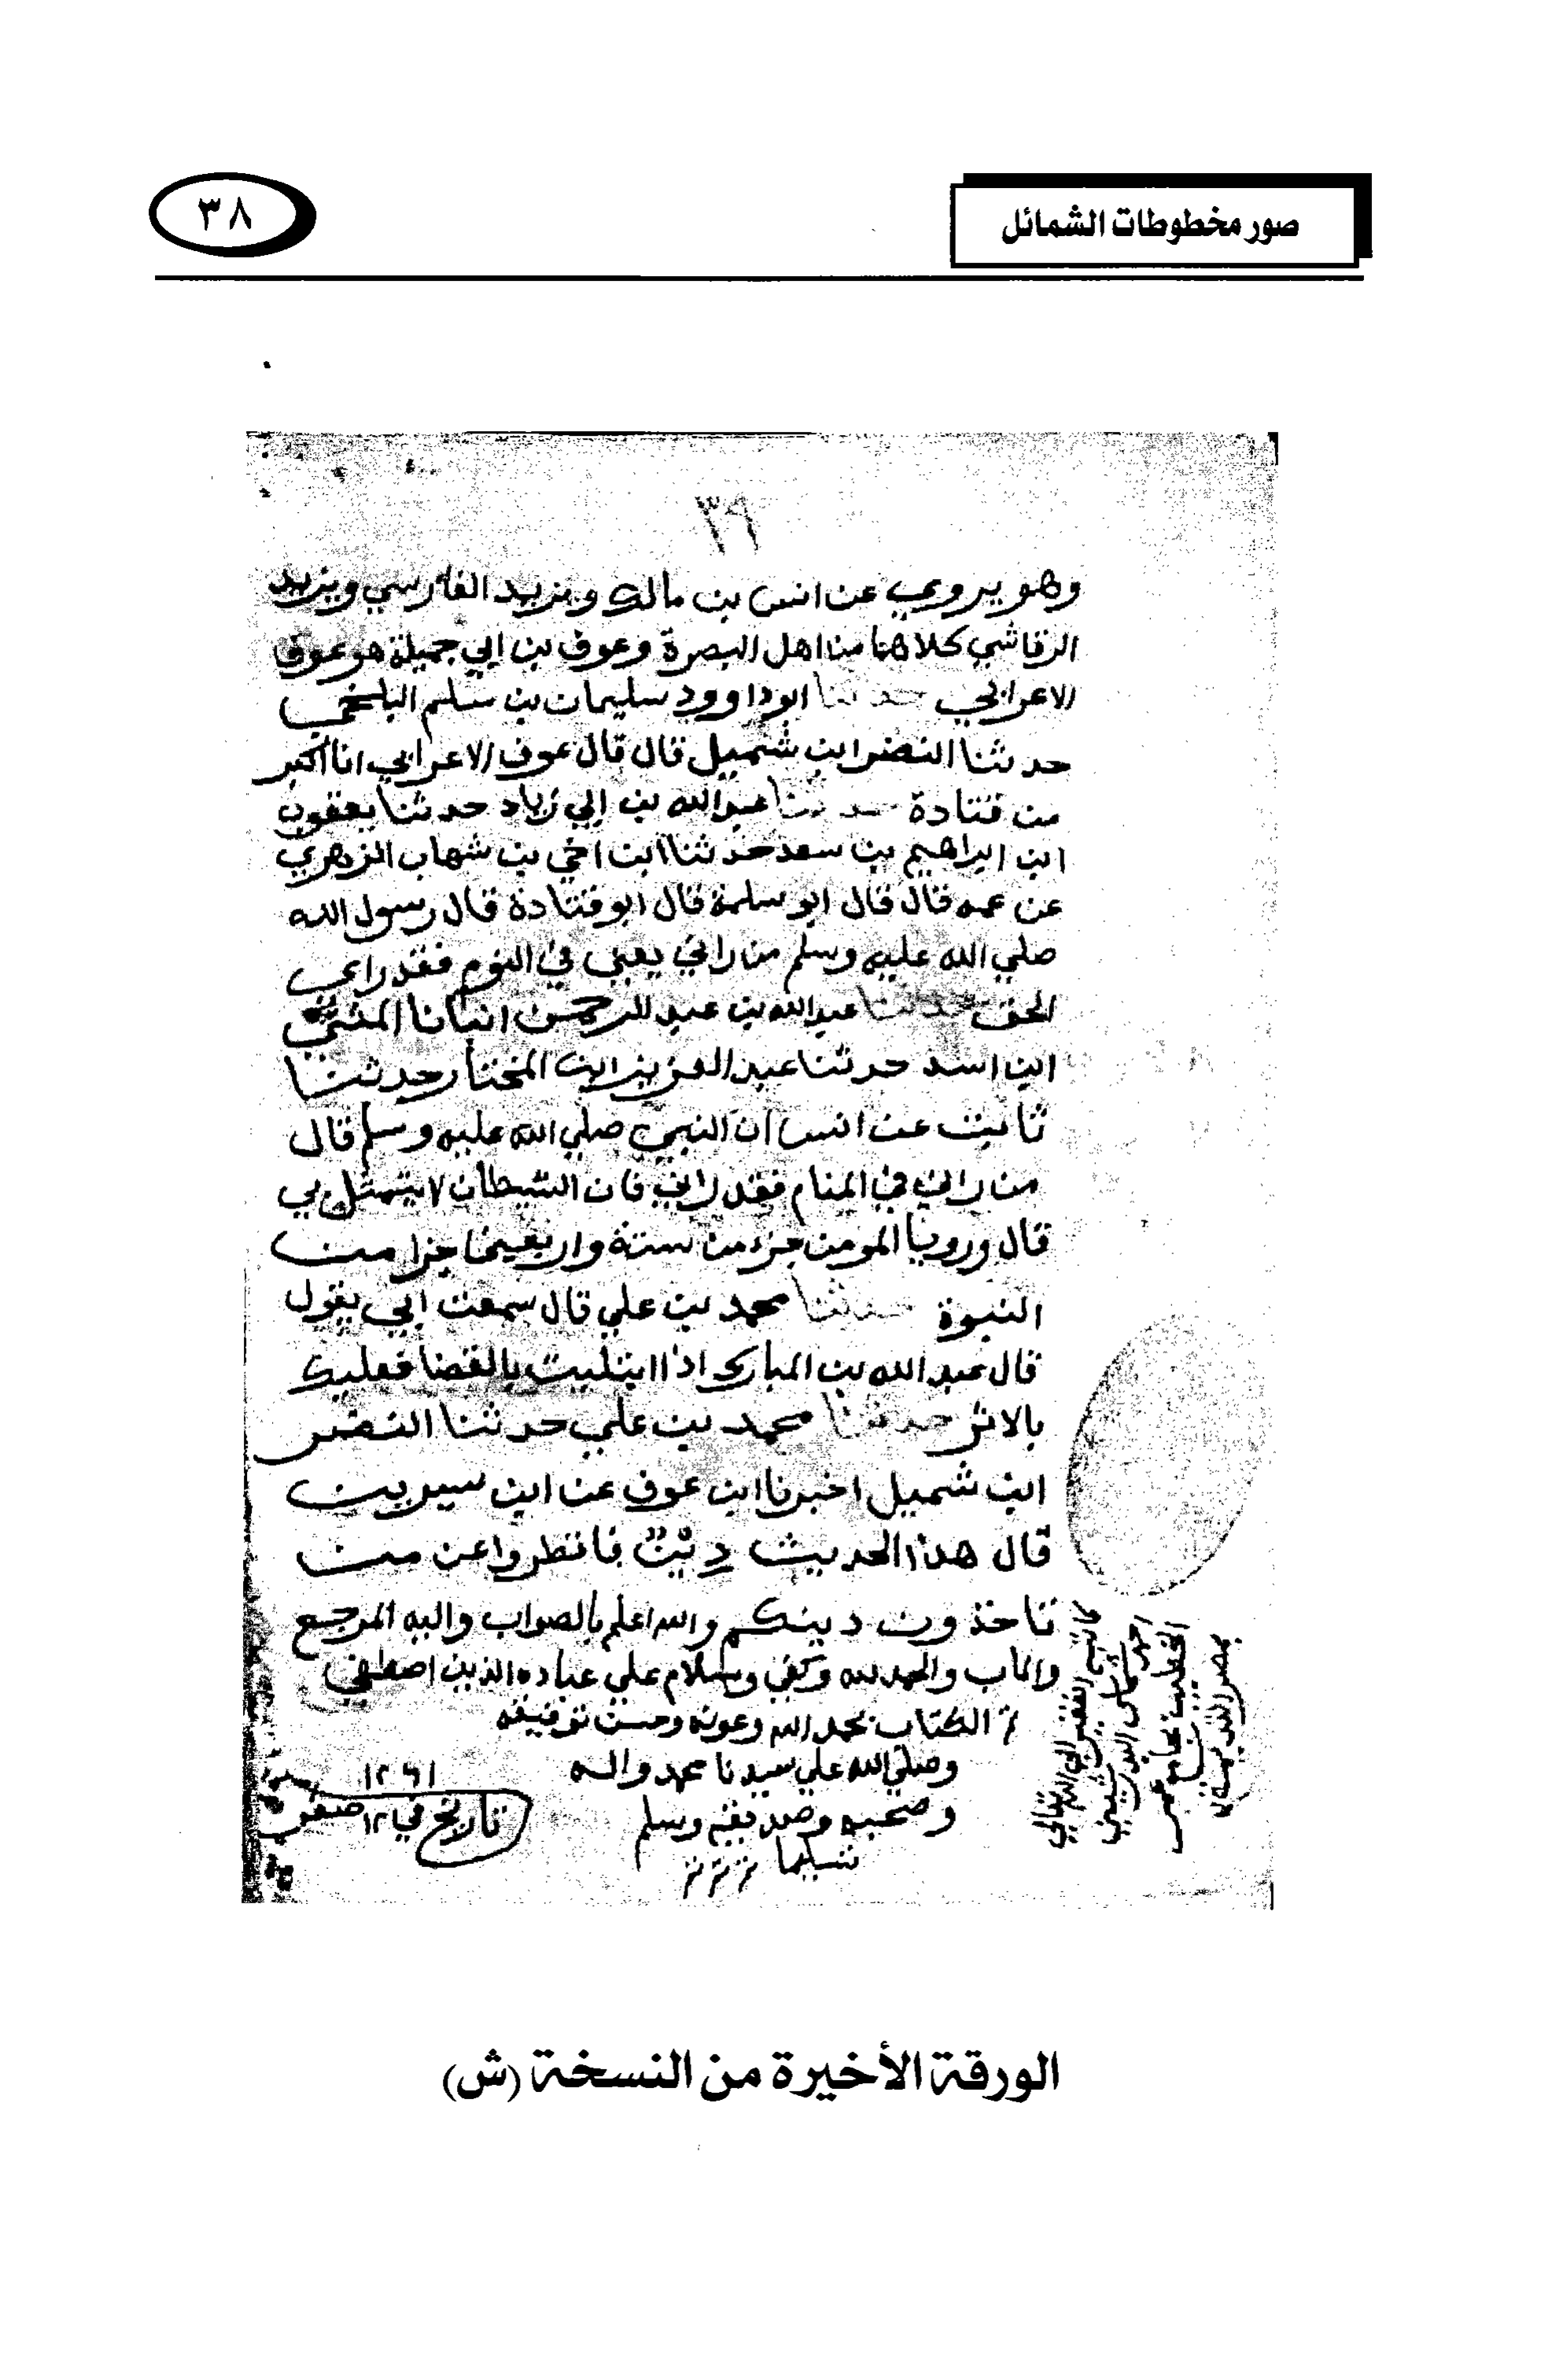 صور مخطوطات الشمائل
٣٨
٣٩
وهو يروي عن انس بن مالك ويزيد الفارسي ويزيد
الرقاشي كلاهما من اهل البصرة وعوف بن ابي جميلة هو عوف
الاعرابي حدثنا ابو داوود سليمان بن سلم البلخي
حدثنا النضر ابن شميل قال قال عوف الاعرابي انا اكبر
من قتادة حدثنا عبد الله بن ابي زياد حدثنا يعقوب
ابن ابراهيم بن سعد حدثنا ابن اخي بن شهاب الزهري
عن عمه قال قال ابو سلمة قال ابو قتادة قال رسول الله
صلي الله عليه وسلم من راني يعني في النوم فقد راي
الحق حدثنا عبد الله بن عبد الرحمن انبانا المثني
ابن اسد حدثنا عبد العزيز ابن المختار حدثنا
ثابت عن انس ان النبي صلي الله عليه وسلم قال
من راني في المنام فقد راني فان الشيطان لا يتمثل بي
قال ورويا المومن جزء من ستة واربعين جزا من
النبوة حدثنا محمد بن علي قال سمعت ابي يقول
قال عبد الله بن المبارك اذا ابتليت بالقضا فعليك
بالاثر حدثنا محمد بن علي حدثنا النضر
ابن شميل اخبرنا ابن عوف عن ابن سيرين
قال هذا الحديث دين فانظروا عن من
تاخذون دينكم والله اعلم بالصواب واليه المرجع
والماب والحمد لله وكفي وسلام علي عباده الذين اصطفي
تم الكتاب بحمد الله وعونه وحسن توفيقه
وصلي الله علي سيدنا محمد واله
وصحبه وسلم
تسليما
تاريخ في ١٢ صفر
١٢٦١
كاتبه الفقير الي الله تعالي
احمد
الخطيب بجامع
بمصر القديمة
الورقة الأخيرة من النسخة (ش)